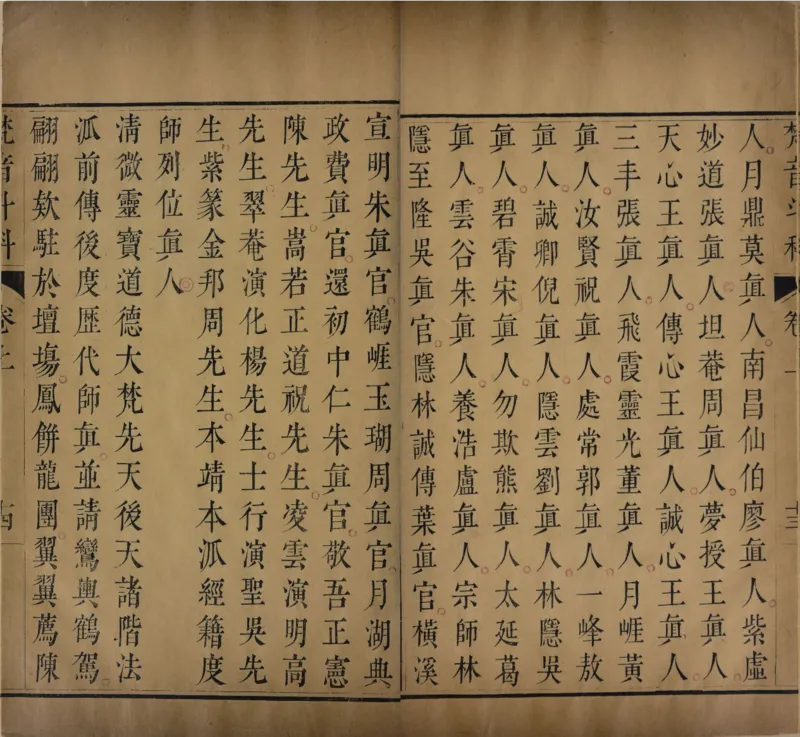 梵音斗科 卷上 十三
人月鼎莫眞人南昌仙伯廖眞人紫虛
妙道張眞人坦菴周眞人夢授王眞人
天心王眞人傳心王眞人誠心王眞人
三丰張眞人飛霞靈光董眞人月崕黃
眞人汝賢祝眞人處常郭眞人一峰敖
眞人誠卿倪眞人隱雲劉眞人林隱吳
眞人碧霄宋眞人勿欺熊眞人太延葛
眞人雲谷朱眞人養浩盧眞人宗師林
隱至隆吳眞官隱林誠傳葉眞官橫溪
宣明朱眞官鶴崕玉瑚周眞官月湖典
政費眞官還初中仁朱眞官敬吾正憲
陳先生嵩若正道祝先生凌雲演明高
先生翠菴演化楊先生士行演聖吳先
生紫篆金邦周先生本靖本派經籍度
師列位眞人
淸微靈寶道德大梵先天後天諸階法
派前傳後度歷代師眞並請鸞輿鶴駕
翩翩欻駐於壇塲鳳餅龍團翼翼薦陳
梵音斗科 卷上 十四